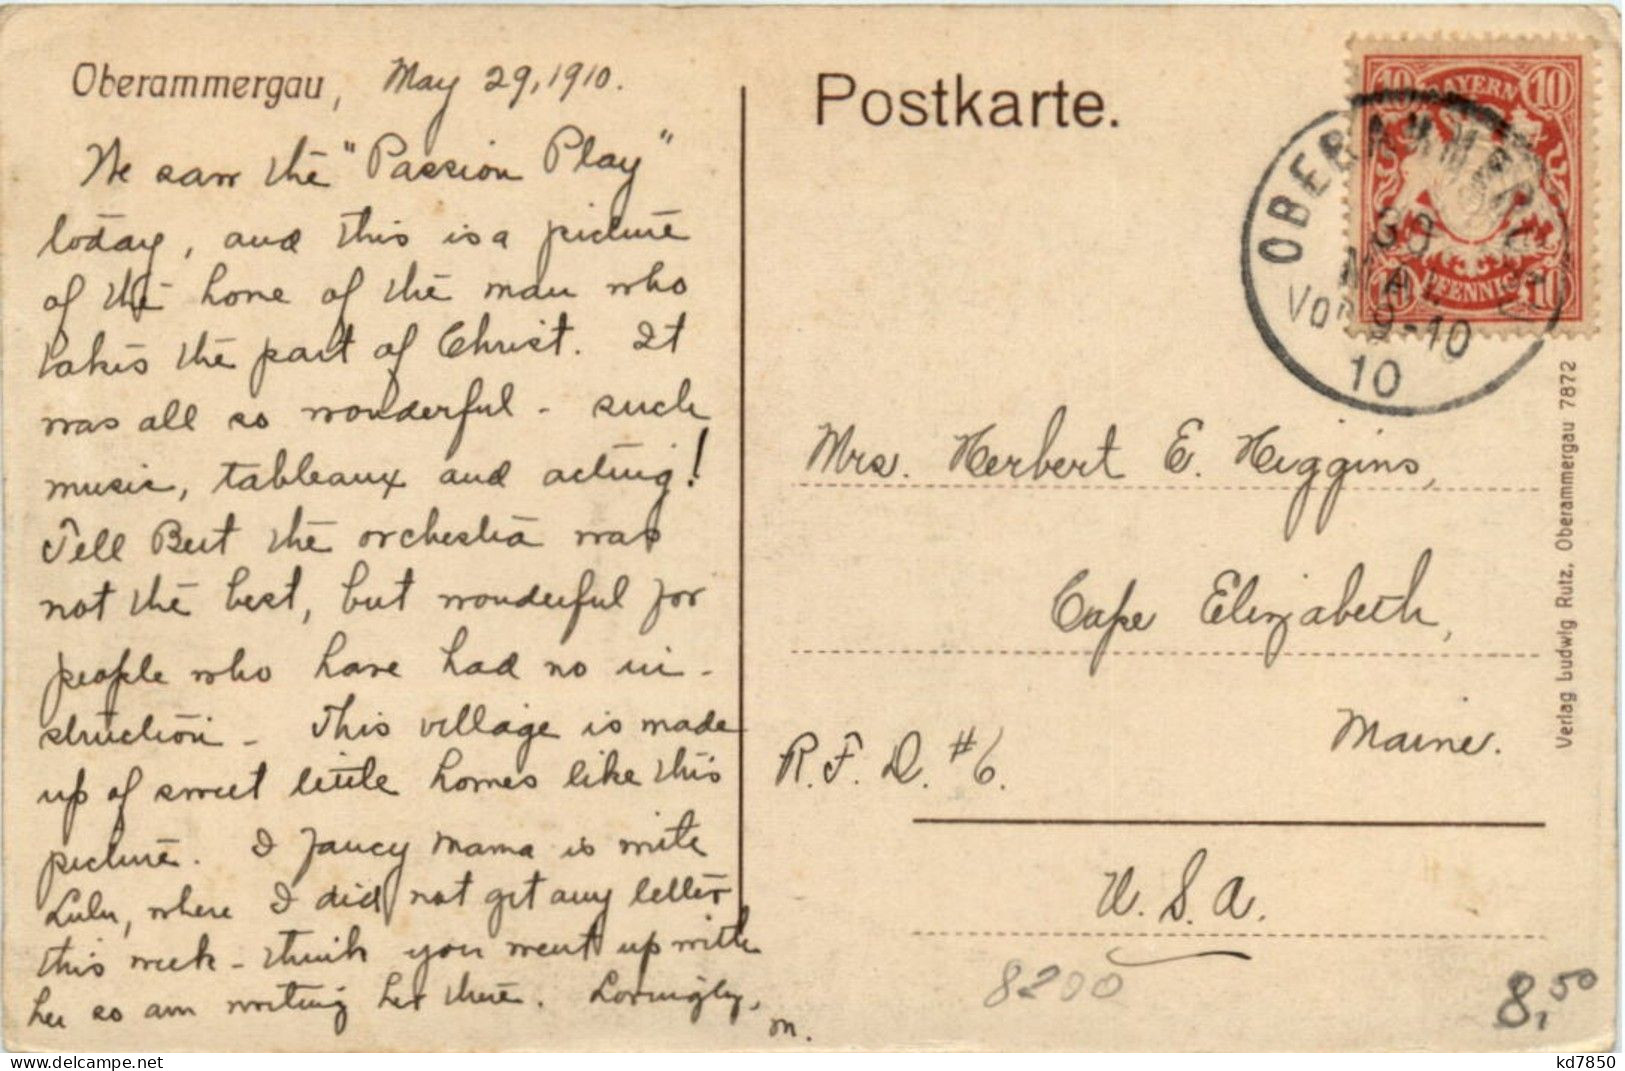 Oberammergau, May 29, 1910.
We saw the "Passion Play"
today, and this is a picture
of the home of the man who
takes the part of Christ. It
was all so wonderful - such
music, tableaux and acting!
Tell Bert the orchestra was
not the best, but wonderful for
people who have had no in-
struction - This village is made
up of sweet little homes like this
picture. I fancy Mama is with
Lulu, where I did not get any letter
this week - think you went up with
her so am writing her there. Lovingly,
M.
Postkarte.
10 BAYERN 10
10 PFENNIG 10
OBERAMMERGAU
30
MAI
Vor 9-10
10
Mrs. Herbert E. Higgins,
Cape Elizabeth,
Maine.
R.F.D. #6.
U.S.A.
8200
8,50
Verlag Ludwig Rutz, Oberammergau 7872
www.delcampe.net
kd7850